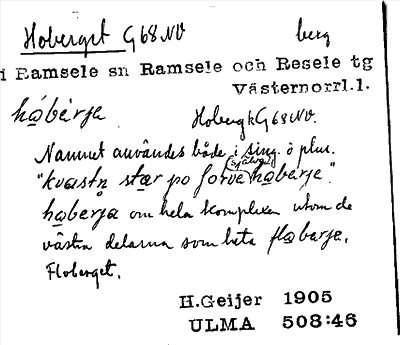 Hoberget G68NV berg
i Ramsele sn Ramsele och Resele tg
Västernorrl.l.
håbèrja Hoberget G68NV.
Namnet användes både i sing. o plur.
(själva)
"kvastn står po sorve håberja".
håberja om hela komplexen utom de
västra delarna som heta floberja.
Floberget.
H.Geijer 1905
ULMA 508:46